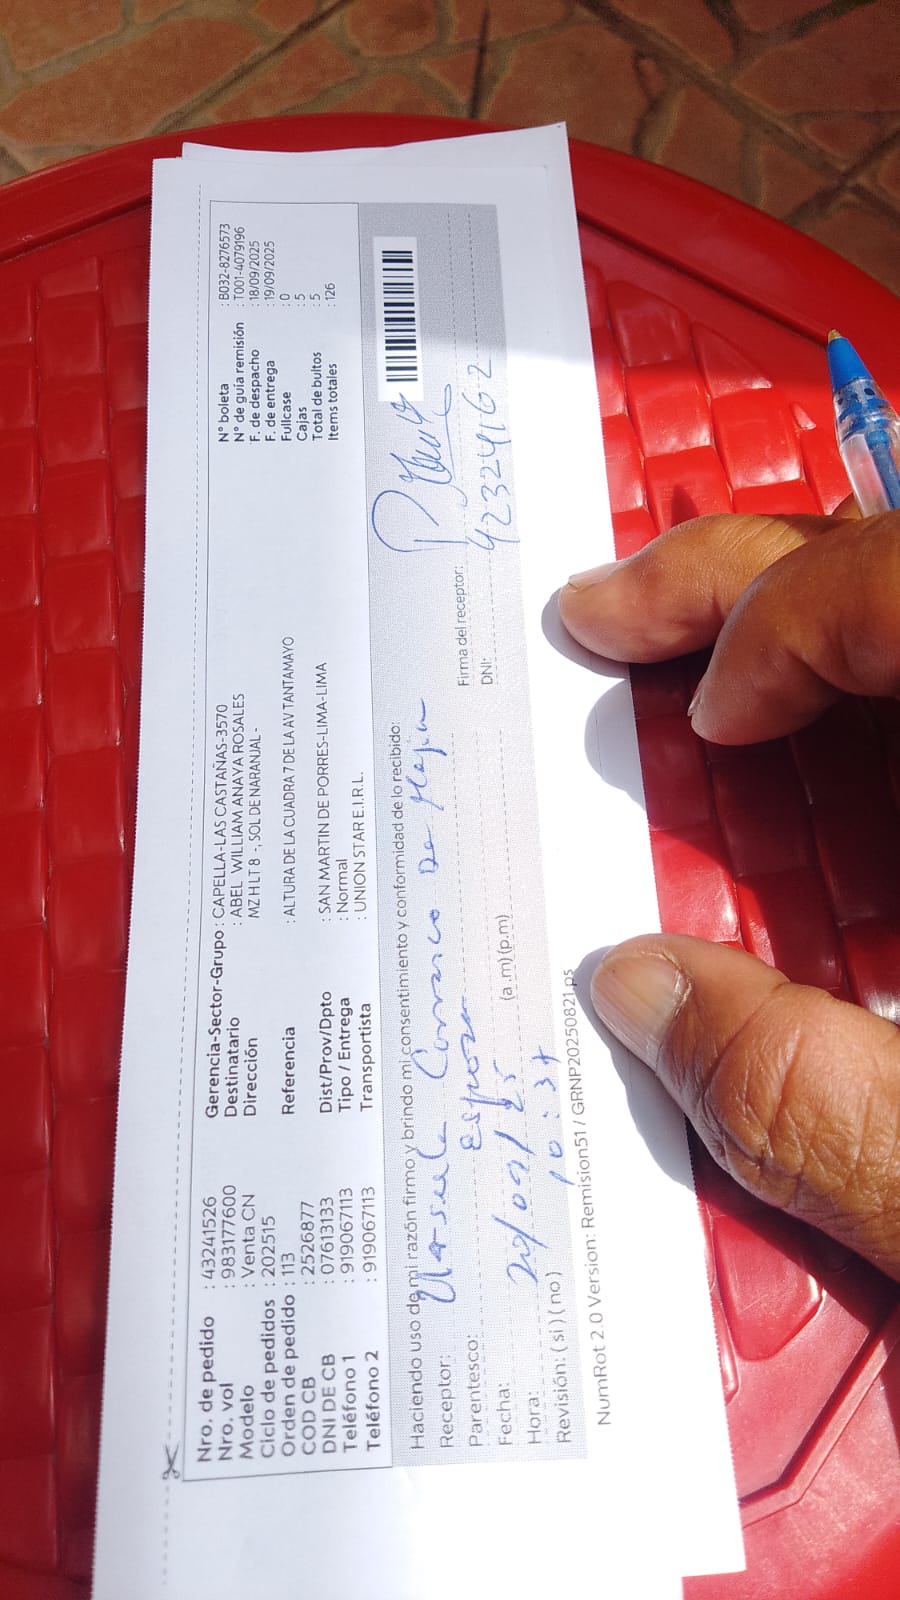 Nro. de pedido : 43241526
Nro. vol : 983177600
Modelo : Venta CN
Ciclo de pedidos : 202515
Orden de pedido : 113
COD CB : 2526877
DNI DE CB : 07613133
Teléfono 1 : 919067113
Teléfono 2 : 919067113
Gerencia-Sector-Grupo : CAPELLA-LAS CASTAÑAS-3570
Destinatario : ABEL WILLIAM ANAYA ROSALES
Dirección : MZ H LT 8 -, SOL DE NARANJAL -
Referencia : ALTURA DE LA CUADRA 7 DE LA AV TANTAMAYO
Dist/Prov/Dpto : SAN MARTIN DE PORRES-LIMA-LIMA
Tipo / Entrega : Normal
Transportista : UNION STAR E.I.R.L.
N° boleta : B032-8276573
N° de guía remisión : T001-4079196
F. de despacho : 18/09/2025
F. de entrega : 19/09/2025
Fullcase : 0
Cajas : 5
Total de bultos : 5
Items totales : 126
Haciendo uso de mi razón firmo y brindo mi consentimiento y conformidad de lo recibido:
Receptor: Carrasco De
Parentesco: esposa
Firma del receptor:
Fecha: 20/09/25
DNI: 42324162
Hora: 10:37 (a.m) (p.m)
Revisión: ( si ) ( no )
NumRot 2.0 Version: Remision51 / GRNP20250821.ps